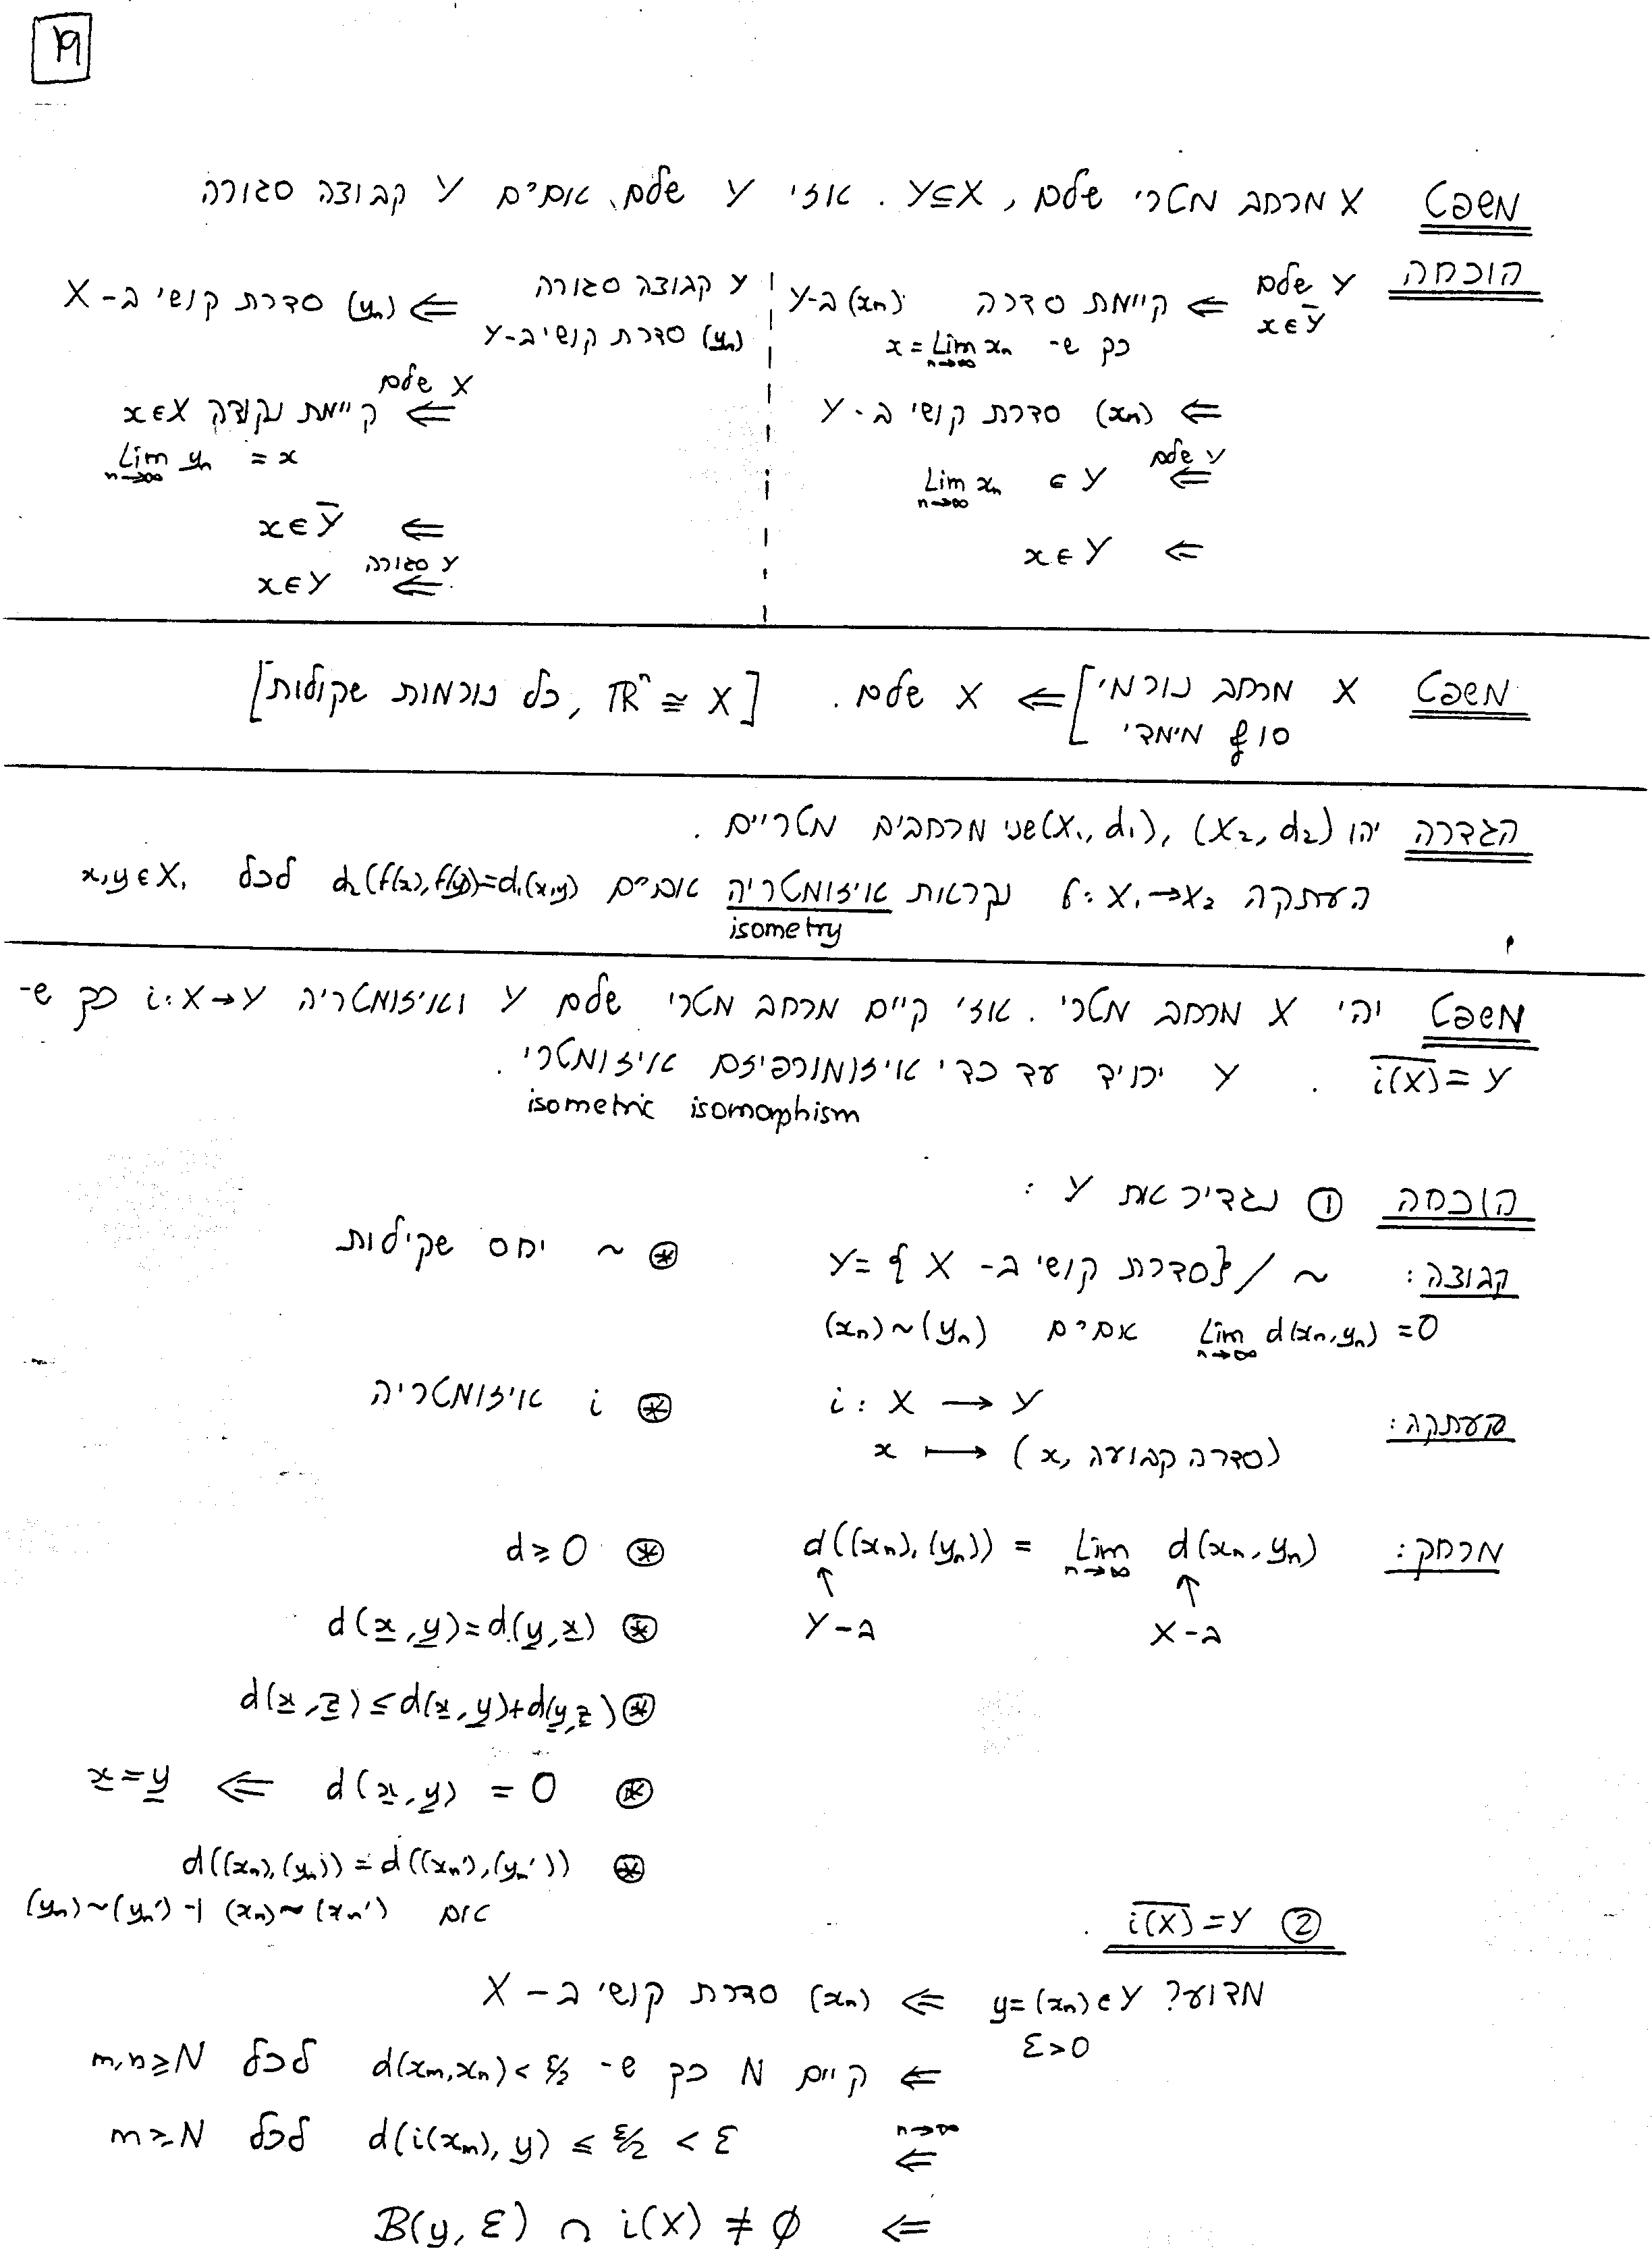 19
משפט X מרחב מטרי שלם, Y⊆X. אזי Y שלם אם"ם Y קבוצה סגורה
הוכחה
Y שלם
x∈Ȳ
⇐ קיימת סדרה (xₙ) ב-Y
כך ש- x = Lim xₙ
n→∞
⇐ (xₙ) סדרת קושי ב-Y
Y שלם
⇐ Lim xₙ ∈ Y
n→∞
⇐ x∈Y
Y קבוצה סגורה
(yₙ) סדרת קושי ב-Y
⇐ (yₙ) סדרת קושי ב-X
X שלם
⇐ קיימת נקודה x∈X
Lim yₙ = x
n→∞
⇐ x∈Ȳ
Y סגורה
⇐ x∈Y
משפט X מרחב נורמי סוף מימדי] ⇐ X שלם. [X ≅ ℝⁿ, כל נורמות שקולות]
הגדרה יהו (X₁,d₁), (X₂,d₂) שני מרחבים מטריים.
העתקה f: X₁→X₂ נקראת איזומטריה אם"ם d₂(f(x),f(y))=d₁(x,y) לכל x,y∈X₁
isometry
משפט יהי X מרחב מטרי. אזי קיים מרחב מטרי שלם Y ואיזומטריה i:X→Y כך ש-
\overline{i(X)}=Y. Y יחיד עד כדי איזומורפיזם איזומטרי.
isometric isomorphism
הוכחה ① נגדיר את Y:
קבוצה: Y={סדרת קושי ב-X}/~
⊛ ~ יחס שקילות
(xₙ)~(yₙ) אם"ם Lim d(xₙ,yₙ)=0
n→∞
העתקה: i: X → Y
⊛ i איזומטריה
x ⟼ (x, סדרה קבועה)
מרחק: d((xₙ),(yₙ)) = Lim d(xₙ,yₙ)
n→∞
⊛ d≥0
↑ ↑
ב-Y ב-X
⊛ d(x̲,y̲)=d(y̲,x̲)
⊛ d(x̲,z̲)≤d(x̲,y̲)+d(y̲,z̲)
⊛ d(x̲,y̲)=0 ⇐ x̲=y̲
⊛ d((xₙ),(yₙ))=d((xₙ'),(yₙ'))
אם (xₙ)~(xₙ') ו- (yₙ)~(yₙ')
② \overline{i(X)}=Y.
מדוע? y=(xₙ)∈Y ⇐ (xₙ) סדרת קושי ב-X
ε>0
⇐ קיים N כך ש- d(xₘ,xₙ)<ε/2 לכל m,n≥N
n→∞
⇐ d(i(xₘ),y) ≤ ε/2 < ε לכל m≥N
⇐ B(y,ε) ∩ i(X) ≠ ∅